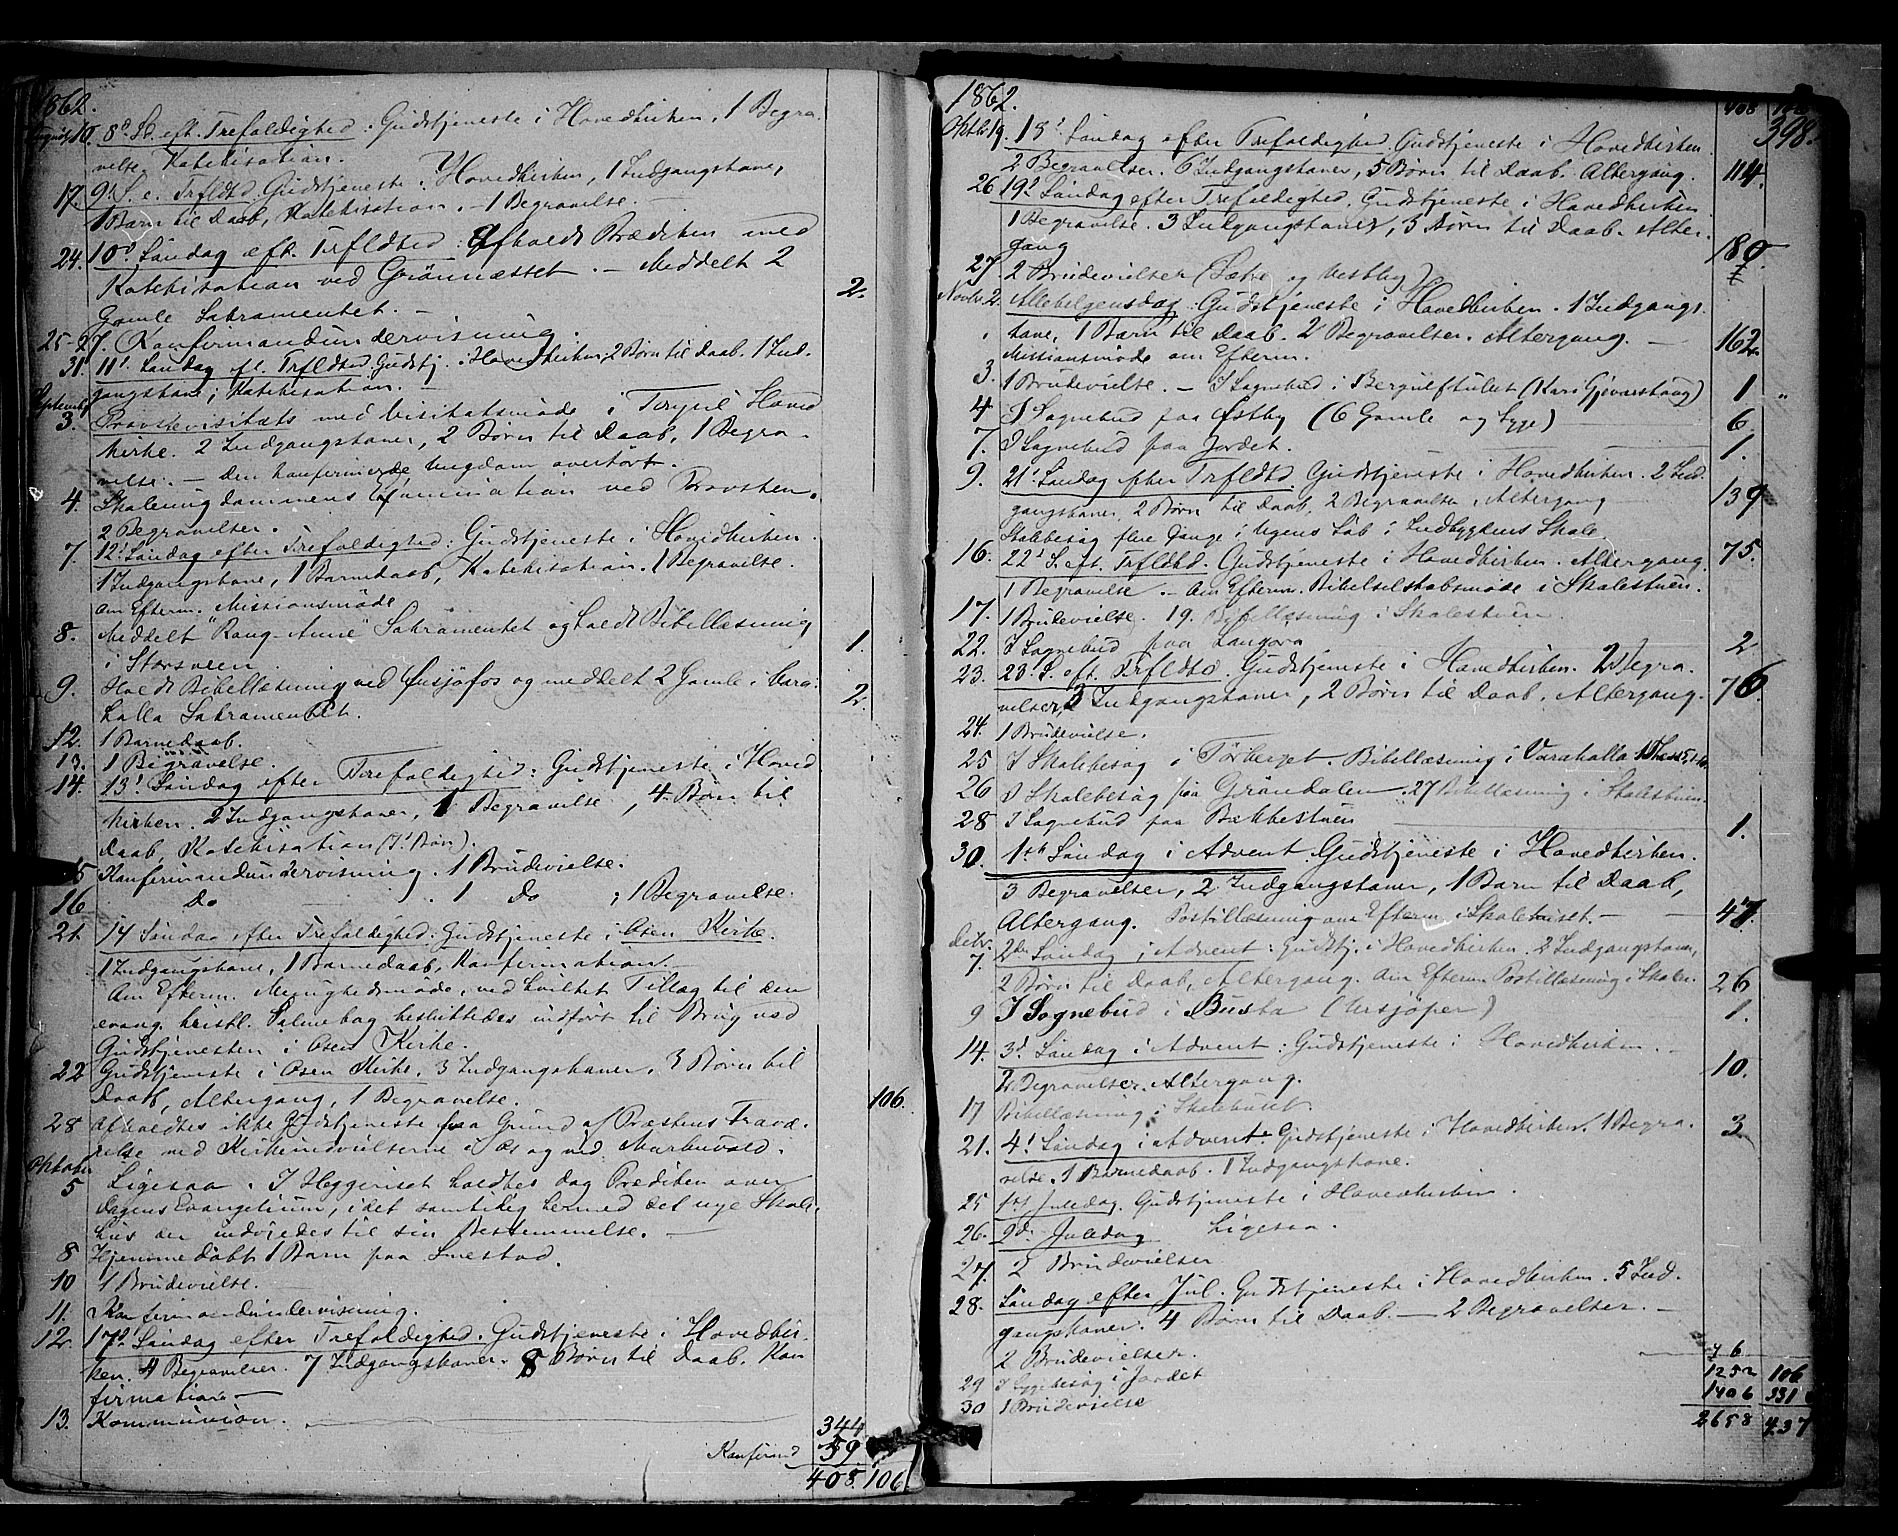 1862.
August 10. 8d S. eft. Trefoldighed. Gudstjeneste i Hovedkirken, 1 Begra-
velse. Katekisation.
17. 9d S. e. Trfldhd Gudstjeneste i Hovedkirken, 1 Indgangskone,
1 Barn til Daab, Katekisation. – 1 Begravelse. –
24. 10d Søndag eft. Trfldhed: Afholdt Prædiken med
Katekisation ved Grønnæsset. – Meddelt 2
Gamle Sakramentet. – 2.
25-27. Konfirmandundervisning.
31. 11d Søndag ef. Trfldhed Gudstj. i Hovedkirken, 2 Børn til Daab. 1 Ind-
gangskone; Katekisation. –
September
3. Provstevisitats med Visitatsmøde i Trysil Hoved
kirke. 2 Indgangskoner, 2 Børn til Daab, 1 Begra-
velse. – den konfirmerede Ungdom overhørt.
4. Skoleungdommens Examination ved Provsten.
2 Begravelser.
7. 12d Søndag efter Trefoldighed: Gudstjeneste i Hovedkirken.
1 Indgangskone, 1 Barnedaab, Katekisation. 1 Begravelse.
om Efterm. Missionsmøde
8. Meddelt "Rong-Anne" Sakramentet og holdt Bibellæsning
i Storsveen. 1.
9. Holdt Bibellæsning ved Innsjøfos og meddelt 2 Gamle i Vara-
holla Sakramentet. 2.
12. 1 Barnedaab.
13. 1 Begravelse.
14. 13d Søndag efter Trefoldighed: Gudstjeneste i Hoved
kirken. 2 Indgangskoner, 1 Begravelse, 4 Børn til
Daab, Katekisation
15 Konfirmandundervisning. 1 Brudevielse.
16 Do 1 Do ; 1 Begravelse.
21. 14 Søndag efter Trefoldighed: Gudstjeneste i Osen Kirke.
1 Indgangskone, 1 Barnedaab, Konfirmation. –
Om Efterm. Menighedsmøde, ved hvilket Tillæg til den
evang. kristl. Salmebog besluttedes indført til Brug ved
Gudstjenesten i Osen Kirke.
22 Gudstjeneste i Osen Kirke. 3 Indgangskoner. 3 Børn til
Daab, Altergang, 1 Begravelse. 106.
28 afholdtes ikke Gudstjeneste paa Grund af Præstens Fravæ-
relse ved Kirkeindvielserne i Næs og ved
Oktober
5 Ligesaa. I Heggeriset holdtes dog Prædiken over
dagens Evangelium, idet samtidig hermed det nye Skole-
hus der indviedes til sin Bestemmelse. –
8 Hjemmedøbt 1 Barn paa Lunestad.
10 1 Brudevielse.
11. Konfirmandundervisning.
12. 17d Søndag efter Trefoldighed. Gudstjeneste i Hovedkir-
ken. 4 Begravelser. 7 Indgangskoner. 8 Børn til Daab. Kon
firmation –
13. Kommunion. 344
Konfirmand 59
405. 106
1862. 405 106
398.
Oktbr 19. 18d Søndag efter Trefoldighed. Gudstjeneste i Hovedkirken
2 Begravelser. 6 Indgangskoner, 5 Børn til Daab. Altergang. 114.
26 19d Søndag efter Trefoldighed. Gudstjeneste i Hovedkirken
1 Begravelse. 3 Indgangskoner, 3 Børn til Daab. Alter-
gang 180.
27. 2 Brudevielser (Sætre og Vestby)
Novbr. 2. Allehelgensdag. Gudstjeneste i Hovedkirken. 1 Indgangs-
kone, 1 Barn til Daab. 2 Begravelser. Altergang. – 162.
Missionsmøde om Efterm.
3. 1 Brudevielse. – I Sognebud i Bergulfstulet (Kari Gjeverstang) 1 "
4 I Sognebud paa Østby (6 Gamle og Syge) 6.
7. I Sognebud paa Jordet. 1.
9. 21d Søndag efter Trfldhd. Gudstjeneste i Hovedkirken. 2 Ind-
gangskoner. 2 Børn til Daab, 2 Begravelser, Altergang 139
Skolebesøg flere Gange i Ugens Løb i Indbygdens Skole
16. 22d S. eft. Trfldhd. Gudstjeneste i Hovedkirken. Altergang 75.
1 Begravelse. – Om Efterm. Bibelselskabsmøde i Skolestuen.
17. 1 Brudevielse. 19. Bibellæsning i Skolestuen.
22. I Sognebud paa Langøra 2
23. 23d S. eft. Trfldhd. Gudstjeneste i Hovedkirken. 2 Begra-
velser, 3 Indgangskoner, 2 Børn til Daab, Altergang. 76
24. 1 Brudevielse.
25 I Skolebesøg i Tørberget. Bibellæsning i Varaholla
26 I Skolebesøg paa Grøndalen. 27 Bibellæsning i Skolestuen.
28 I Sognebud paa Bækkestuen 1.
30. 1ste Søndag i Advent. Gudstjeneste i Hovedkirken.
3 Begravelser, 2 Indgangskoner, 1 Barn til Daab,
Altergang. Postillæsning om Efterm. i Skolehuset. – 47.
Decbr.
7. 2den Søndag i Advent: Gudstj. i Hovedkirken. 2 Indgangskoner,
2 Børn til Daab, Altergang. Om Efterm Postillæsning i Skolen. 26
9 I Sognebud i Busta (Ursjøper) 1.
14. 3d Søndag i Advent: Gudstjeneste i Hovedkirken. –
2 Begravelser. Altergang. 10.
17 Bibellæsning i Skolehuset.
21. 4d Søndag i Advent: Gudstjeneste i Hovedkirken. 1 Begra- 3
velse. 1 Barnedaab. 1 Indgangskone.
25 1ste Juledag. Gudstjeneste i Hovedkirken.
26. 2d Juledag Ligesaa.
27. 2 Brudevielser
28. Søndag efter Jul. Gudstjeneste i Hovedkirken. 5 Ind-
gangskoner. 4 Børn til Daab. – 2 Begravelser. –
2 Brudevielser.
29 I Sygebesøg i Jordet
30 1 Brudevielse
1252 106
1406 331
2658 437